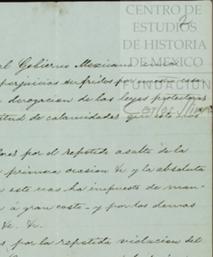 CENTRO DE
ESTUDIOS
DE HISTORIA
DE MEXICO
FUNDACIÓN
2
el Gobierno Mexicano
perjuicios sufridos por nuestra casa
derogacion de las leyes protectoras
titud de calamidades que
por el repetido asalto de la
primera ocasion &c y la absoluta
este caso ha impuesto de man
á gran costo - y por los demas
&c. &c.
por la repetida violacion del